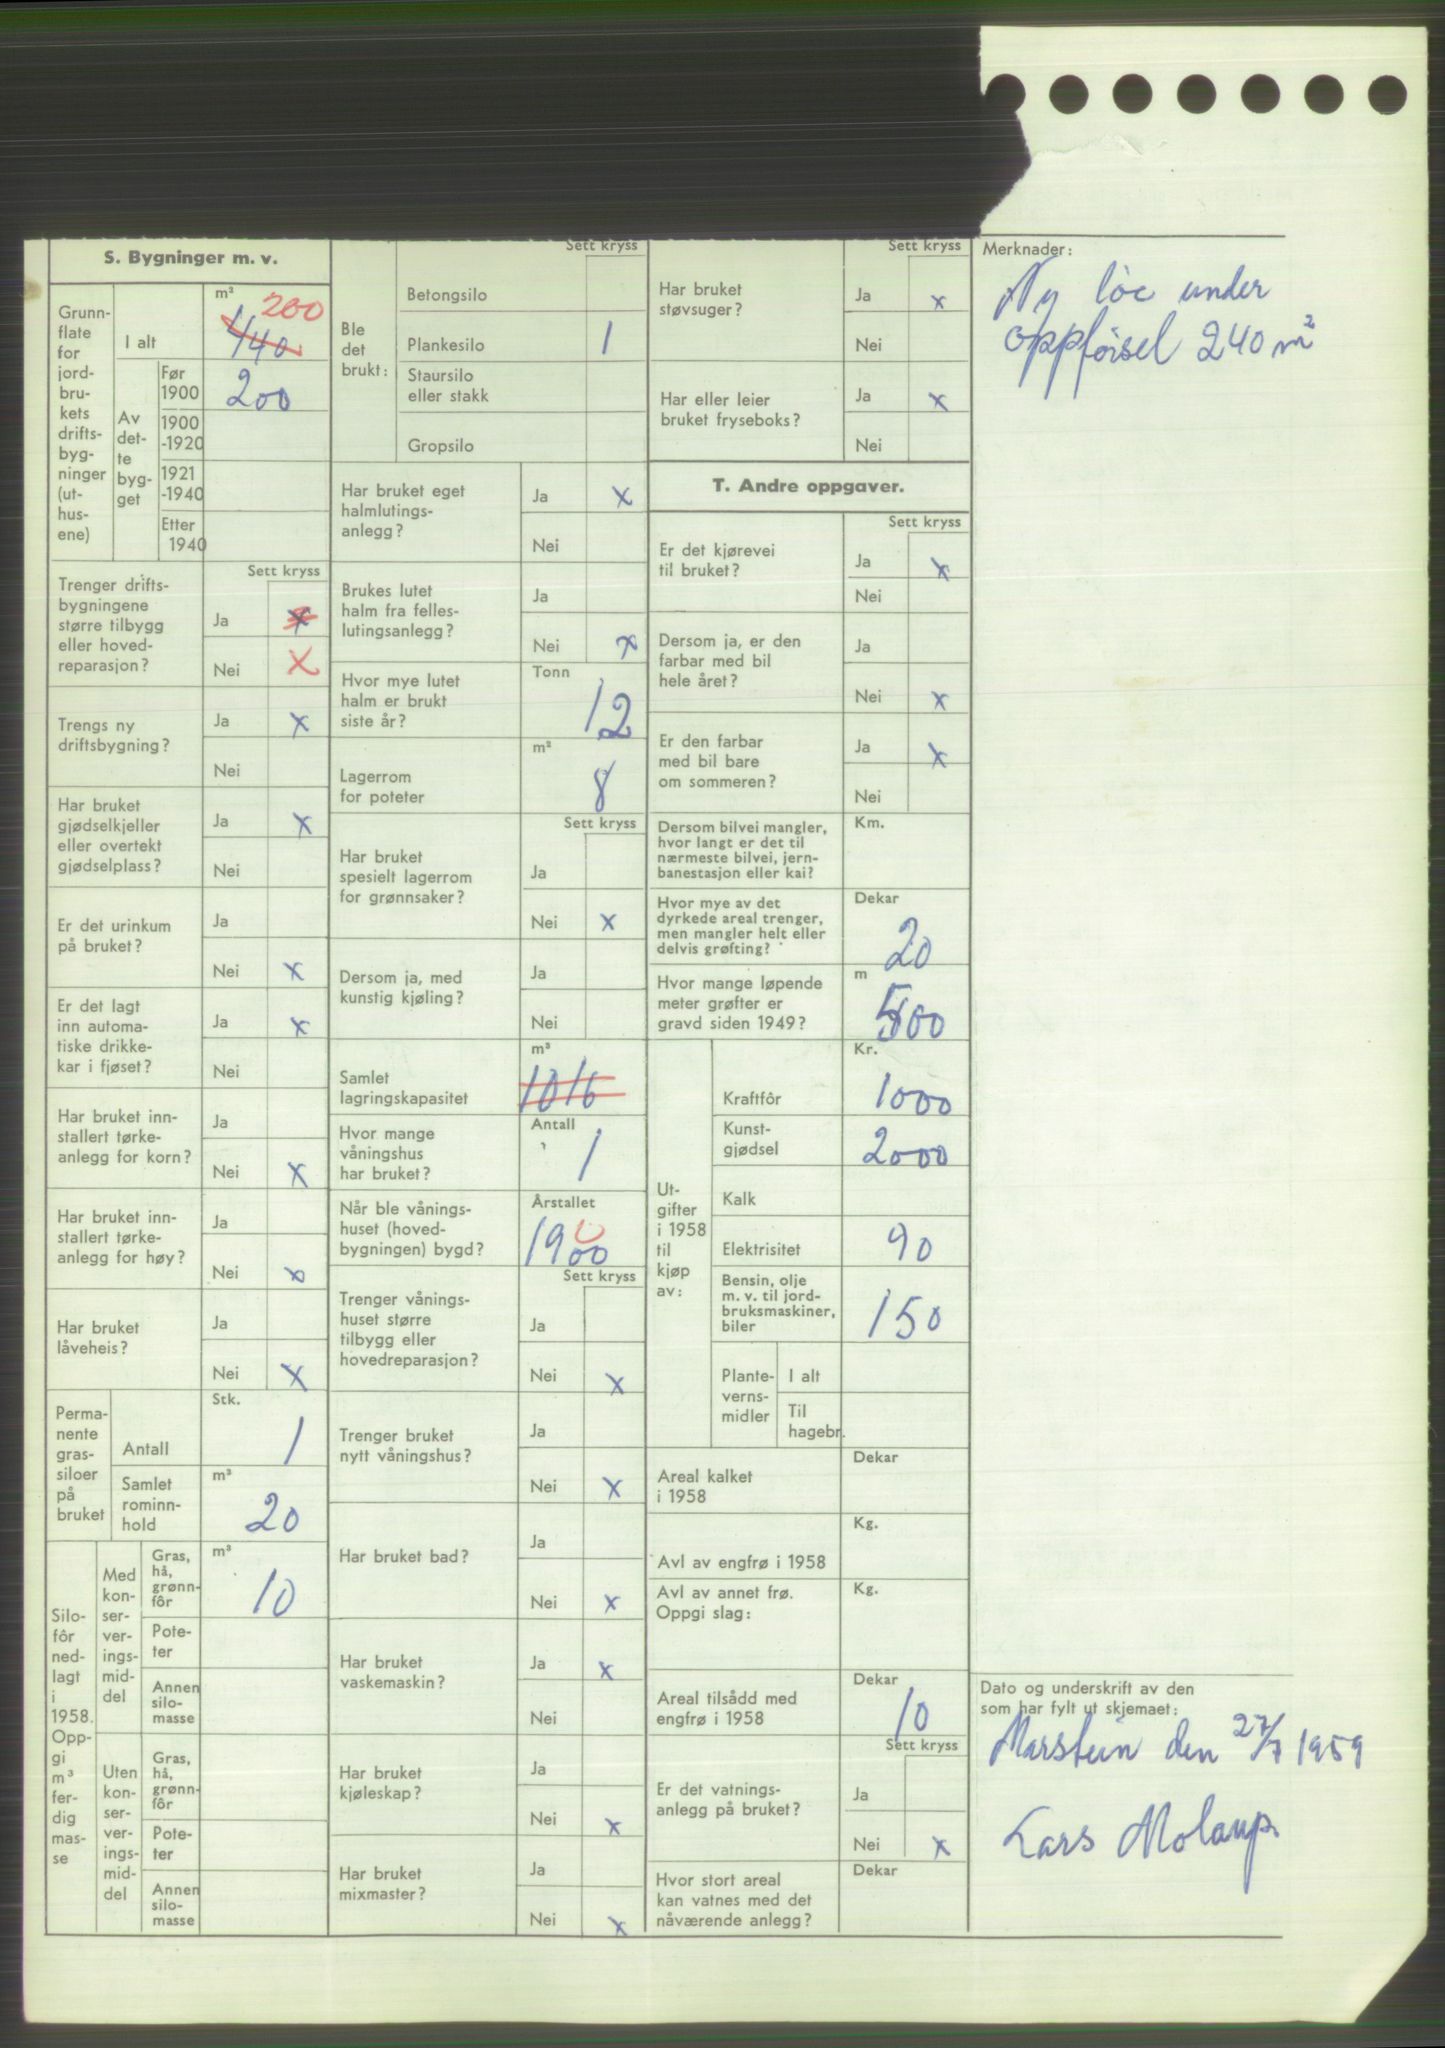 S. Bygninger m. v.
Grunn-
flate
for
jord-
bru-
kets
drifts-
byg-
ninger
(ut-
hus-
ene)
m²
I alt
200
440
Av
det-
te
byg-
get
Før
1900
200
1900
-1920
1921
-1940
Etter
1940
Sett kryss
Trenger drifts-
bygningene
større tilbygg
eller hoved-
reparasjon?
Ja x
Nei x
Trengs ny
driftsbygning?
Ja x
Nei
Har bruket
gjødselkjeller
eller overtekt
gjødselplass?
Ja x
Nei
Er det urinkum
på bruket?
Ja
Nei x
Er det lagt
inn automa-
tiske drikke-
kar i fjøset?
Ja x
Nei
Har bruket inn-
stallert tørke-
anlegg for korn?
Ja
Nei x
Har bruket inn-
stallert tørke-
anlegg for høy?
Ja
Nei x
Har bruket
låveheis?
Ja
Nei x
Perma-
nente
gras-
siloer
på
bruket
Stk.
Antall 1
Samlet
rominn-
hold
m³
20
Silo-
fôr
ned-
lagt
i
1958.
Opp-
gi
m³
fer-
dig
mas-
se
Med
kon-
ser-
ver-
ings-
mid-
del
Gras,
hå,
grønn-
fôr
m³
10
Pote-
ter
Annen
silo-
masse
Uten
kon-
ser-
ver-
ings-
mid-
del
Gras,
hå,
grønn-
fôr
Pote-
ter
Annen
silo-
masse
Sett kryss
Ble
det
brukt:
Betongsilo
Plankesilo 1
Staursilo
eller stakk
Gropsilo
Har bruket eget
halmlutings-
anlegg?
Ja x
Nei
Brukes lutet
halm fra felles-
lutingsanlegg?
Ja
Nei x
Hvor mye lutet
halm er brukt
siste år?
Tonn
12
Lagerrom
for poteter
m²
8
Sett kryss
Har bruket
spesielt lagerrom
for grønnsaker?
Ja
Nei x
Dersom ja, med
kunstig kjøling?
Ja
Nei
Samlet
lagringskapasitet
m³
1016
Hvor mange
våningshus
har bruket?
Antall
1
Når ble vånings-
huset (hoved-
bygningen) bygd?
Årstallet
1900
Sett kryss
Trenger vånings-
huset større
tilbygg eller
hovedreparasjon?
Ja
Nei x
Trenger bruket
nytt våningshus?
Ja
Nei x
Har bruket bad?
Ja
Nei x
Har bruket
vaskemaskin?
Ja x
Nei
Har bruket
kjøleskap?
Ja
Nei x
Har bruket
mixmaster?
Ja
Nei x
Sett kryss
Har bruket
støvsuger?
Ja x
Nei
Har eller leier
bruket fryseboks?
Ja x
Nei
T. Andre oppgaver.
Sett kryss
Er det kjørevei
til bruket?
Ja x
Nei
Dersom ja, er den
farbar med bil
hele året?
Ja
Nei x
Er den farbar
med bil bare
om sommeren?
Ja x
Nei
Dersom bilvei mangler,
hvor langt er det til
nærmeste bilvei, jern-
banestasjon eller kai?
Km.
Hvor mye av det
dyrkede areal trenger,
men mangler helt eller
delvis grøfting?
Dekar
20
Hvor mange løpende
meter grøfter er
gravd siden 1949?
m
500
Ut-
gifter
i 1958
til
kjøp
av:
Kr.
Kraftfôr 1000
Kunst-
gjødsel 2000
Kalk
Elektrisitet 90
Bensin, olje
m. v. til jord-
bruksmaskiner,
biler
150
Plante-
verns-
midler
I alt
Til
hagebr.
Areal kalket
i 1958
Dekar
Avl av engfrø i 1958
Kg.
Avl av annet frø.
Oppgi slag:
Kg.
Areal tilsådd med
engfrø i 1958
Dekar
10
Sett kryss
Er det vatnings-
anlegg på bruket?
Ja
Nei x
Hvor stort areal
kan vatnes med det
nåværende anlegg?
Dekar
Merknader:
Ny løe under
oppførsel 240 m²
Dato og underskrift av den
som har fylt ut skjemaet:
Marstein den 27/7 1959
Lars Molaup.